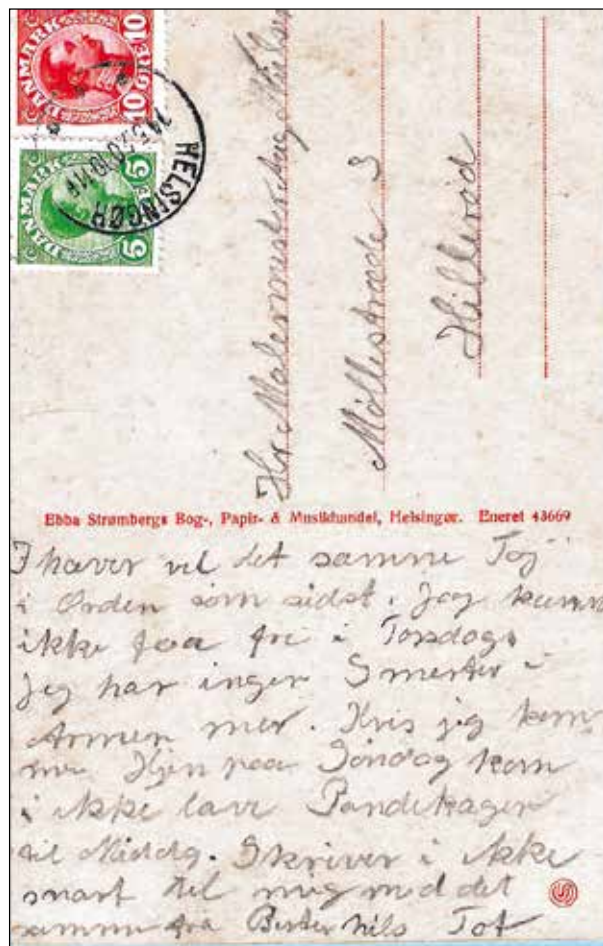 DANMARK
10 10
ØRE
DANMARK
5 5
HELSINGØR
Hr. Malermester Aug.
Møllestræde 3
Hillerød
Ebba Strømbergs Bog-, Papir- & Musikhandel, Helsingør. Eneret 43669
I haver vel det samme Toj
i Orden som sidst. Jeg kunn
ikke faa fri i Torsdag.
Jeg har ingen Smerter i
Armen mer. Hvis jeg kom
mer Hjen paa Sondag kan
i ikke lave Pandekager
til Middg. Skriver i ikke
snart til mig med det
samme fra Nils Tot